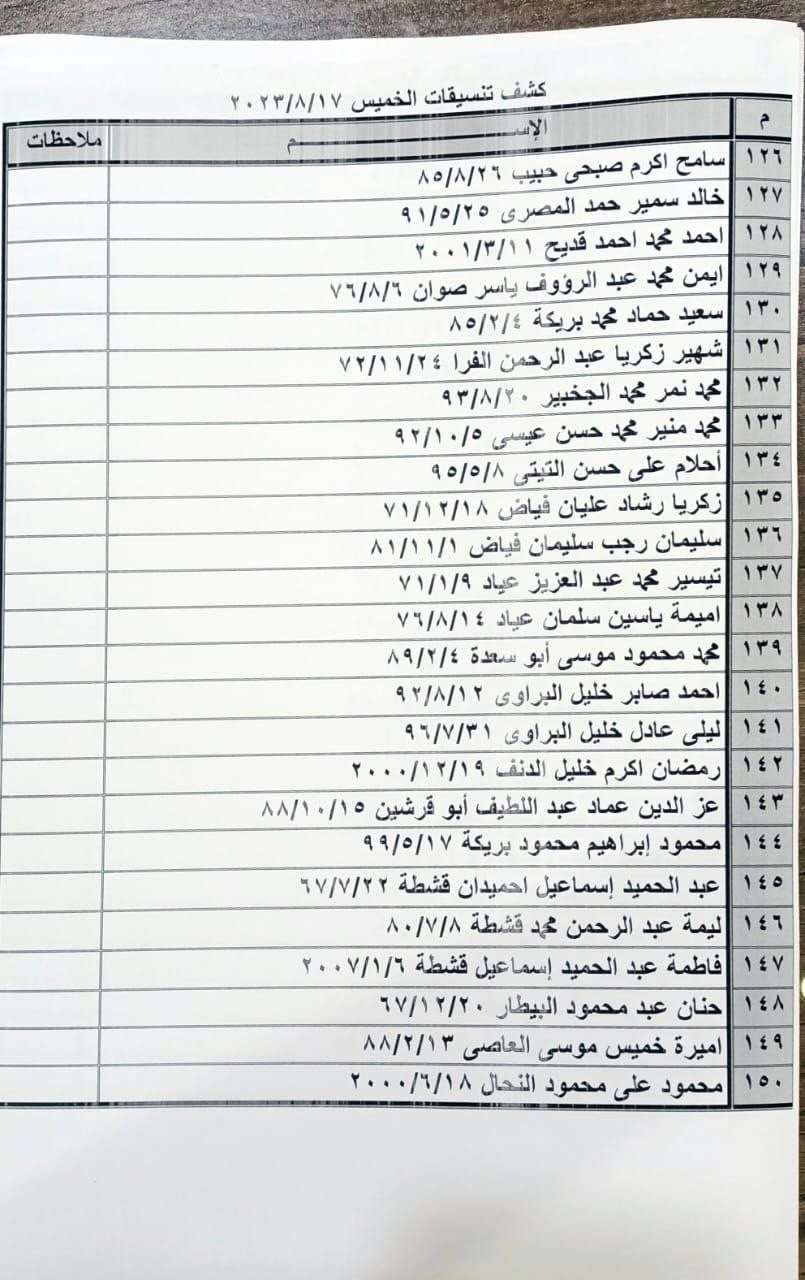 كشف تنسيقات الخميس ٢٠٢٣/٨/١٧
م الإســـم ملاحظات
١٢٦ سامح اكرم صبحى حبيب ٨٥/٨/٢٦
١٢٧ خالد سمير حمد المصرى ٩١/٥/٢٥
١٢٨ احمد محمد احمد قديح ٢٠٠١/٣/١١
١٢٩ ايمن محمد عبد الرؤوف ياسر صوان ٧٦/٨/٦
١٣٠ سعيد حماد محمد بريكة ٨٥/٢/٤
١٣١ شهير زكريا عبد الرحمن الفرا ٧٢/١١/٢٤
١٣٢ محمد نمر محمد الجخبير ٩٣/٨/٢٠
١٣٣ محمد منير محمد حسن عيسى ٩٢/١٠/٥
١٣٤ أحلام على حسن التيتى ٩٥/٥/٨
١٣٥ زكريا رشاد عليان فياض ٧١/١٢/١٨
١٣٦ سليمان رجب سليمان فياض ٨١/١١/١
١٣٧ تيسير محمد عبد العزيز عياد ٧١/١/٩
١٣٨ اميمة ياسين سلمان عياد ٧٦/٨/١٤
١٣٩ محمد محمود موسى أبو سعدة ٨٩/٢/٤
١٤٠ احمد صابر خليل البراوى ٩٢/٨/١٢
١٤١ ليلى عادل خليل البراوى ٩٦/٧/٣١
١٤٢ رمضان اكرم خليل الدنف ٢٠٠٠/١٢/١٩
١٤٣ عز الدين عماد عبد اللطيف أبو قرشين ٨٨/١٠/١٥
١٤٤ محمود إبراهيم محمود بريكة ٩٩/٥/١٧
١٤٥ عبد الحميد إسماعيل احميدان قشطة ٦٧/٧/٢٢
١٤٦ ليمة عبد الرحمن محمد قشطة ٨٠/٧/٨
١٤٧ فاطمة عبد الحميد إسماعيل قشطة ٢٠٠٧/١/٦
١٤٨ حنان عبد محمود البيطار ٦٧/١٢/٢٠
١٤٩ اميرة خميس موسى العاصى ٨٨/٢/١٣
١٥٠ محمود على محمود النحال ٢٠٠٠/٦/١٨